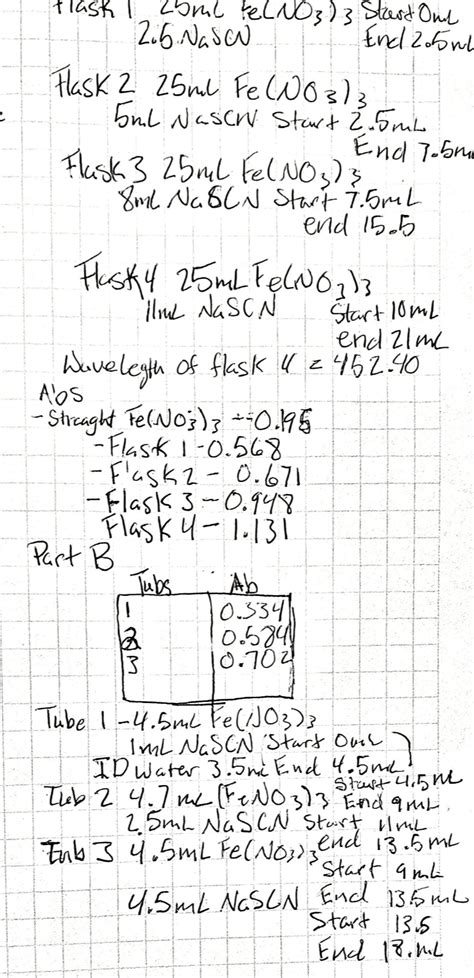 Flask 1 25mL Fe(NO3)3 Start 0mL
2.6 NaSCN End 2.5mL
Flask 2 25mL Fe(NO3)3
5mL NaSCN Start 2.5mL
End 7.5m
Flask 3 25mL Fe(NO3)3
8mL NaSCN Start 7.5mL
end 15.5
Flask 4 25mL Fe(NO3)3
11mL NaSCN Start 10mL
end 21mL
Wavelegth of flask 4 = 452.40
Abs
- Straight Fe(NO3)3 - 0.195
- Flask 1 - 0.568
- Flask 2 - 0.671
- Flask 3 - 0.948
Flask 4 - 1.131
Part B
Tubs Ab
1 0.334
2 0.584
3 0.702
Tube 1 - 4.5mL Fe(NO3)3
1mL NaSCN Start 0mL
ID Water 3.5mL End 4.5mL
Start 4.5mL
Tub 2 4.7mL (FeNO3)3 End 9mL
2.5mL NaSCN Start 11mL
end 13.5mL
Tub 3 4.5mL Fe(NO3)3
Start 9mL
4.5mL NaSCN End 13.5mL
Start 13.5
End 18.mL